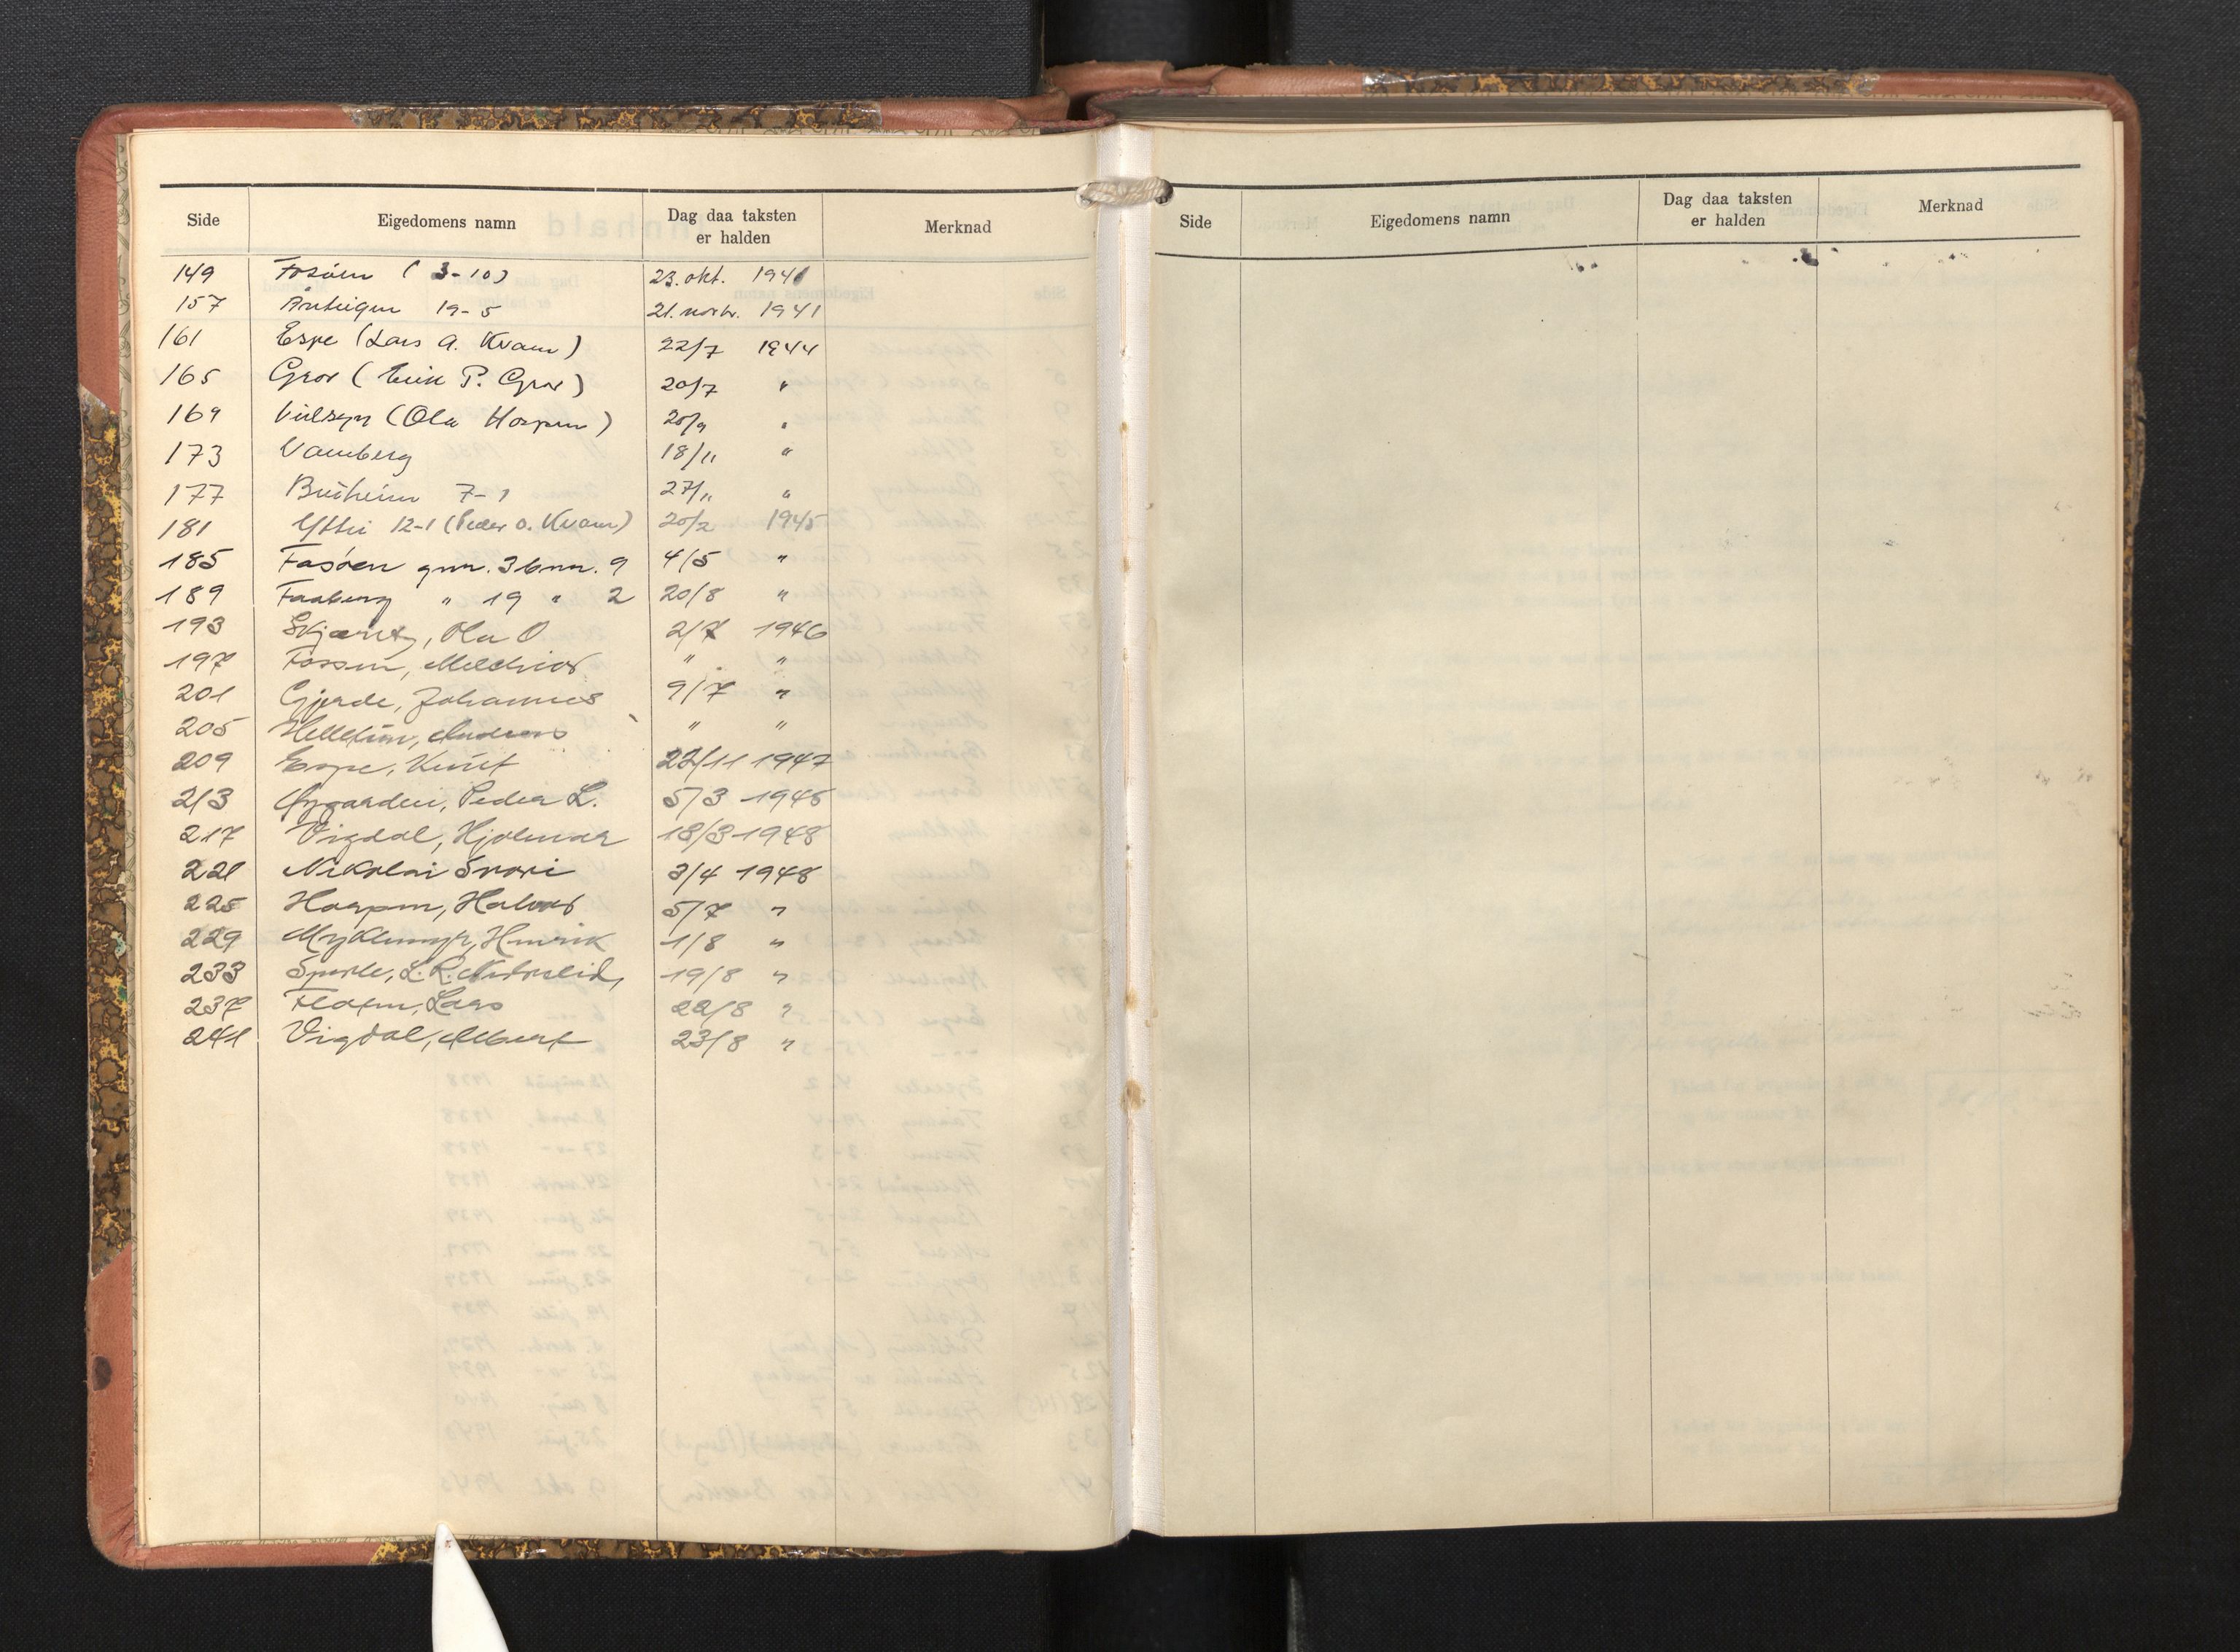 Side Eigedomens namn Dag daa taksten er halden Merknad
149 Fosöen (3-10) 23. okt. 1941
157 19-5 21. novbr. 1941
161 Espe (Lars A. Kvam) 22/7 1944
165 Grov (Eirik P. Grov) 20/7 "
169 (Ola Haspen) 20/9 "
173 Vamberg 18/11 "
177 Buheim 7-1 27/11 "
181 Yttri 12-1 (Peder O. Kvam) 20/2 1945
185 Fosöen gnr. 3 bnr. 9 4/5 "
189 Faaberg " 19 " 2 20/8 "
193 Ola O 2/7 1946
197 Fossen, Melchior " "
201 Gjerde, Johannes 9/7 "
205 Andreas " "
209 Espe, Knut 22/11 1947
213 Øygarden, Peder L. 5/3 1948
217 Vigdal, Hjalmar 18/3-1948
221 Nikolai Snori 3/4 1948
225 Haspen, Halvor 5/7 "
229 Myklemyr, Henrik 1/8 "
233 Sperle, L. R. 19/8 "
237 Flaten, Lars 22/8 "
241 Vigdal, Albert 23/8 "
Side Eigedomens namn Dag daa taksten er halden Merknad